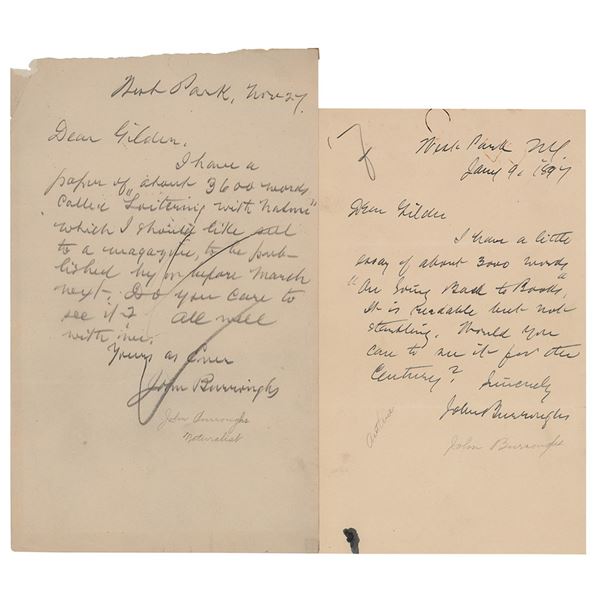 West Park, Nov 27.
Dear Gilder,
I have a
paper of about 3600 words
called "Loitering with Nature"
which I should like sell
to a magazine, to be pub-
lished by or before March
next. Do you care to
see it? All well
with me.
Yours as Ever
John Burroughs
John Burroughs
Naturalist
West Park NY
Jany 9, 1897
Dear Gilder
I have a little
essay of about 3000 words
"On Going Back to Books,"
It is readable but not
startling. Would you
care to see it for the
Century?
Sincerely
John Burroughs
John Burroughs